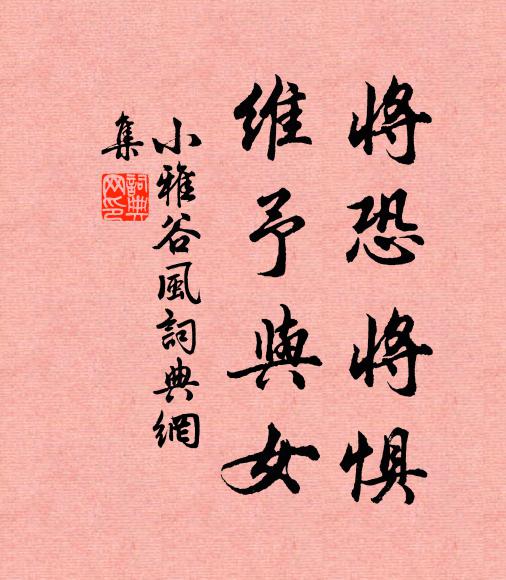 將恐將惧
維予與女
小雅谷風詞典網
集
詞典
网印